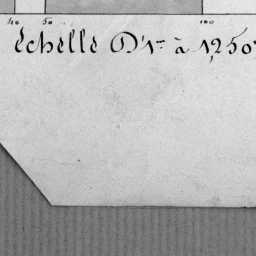 40 50 100
échelle D'1.m à 1,250